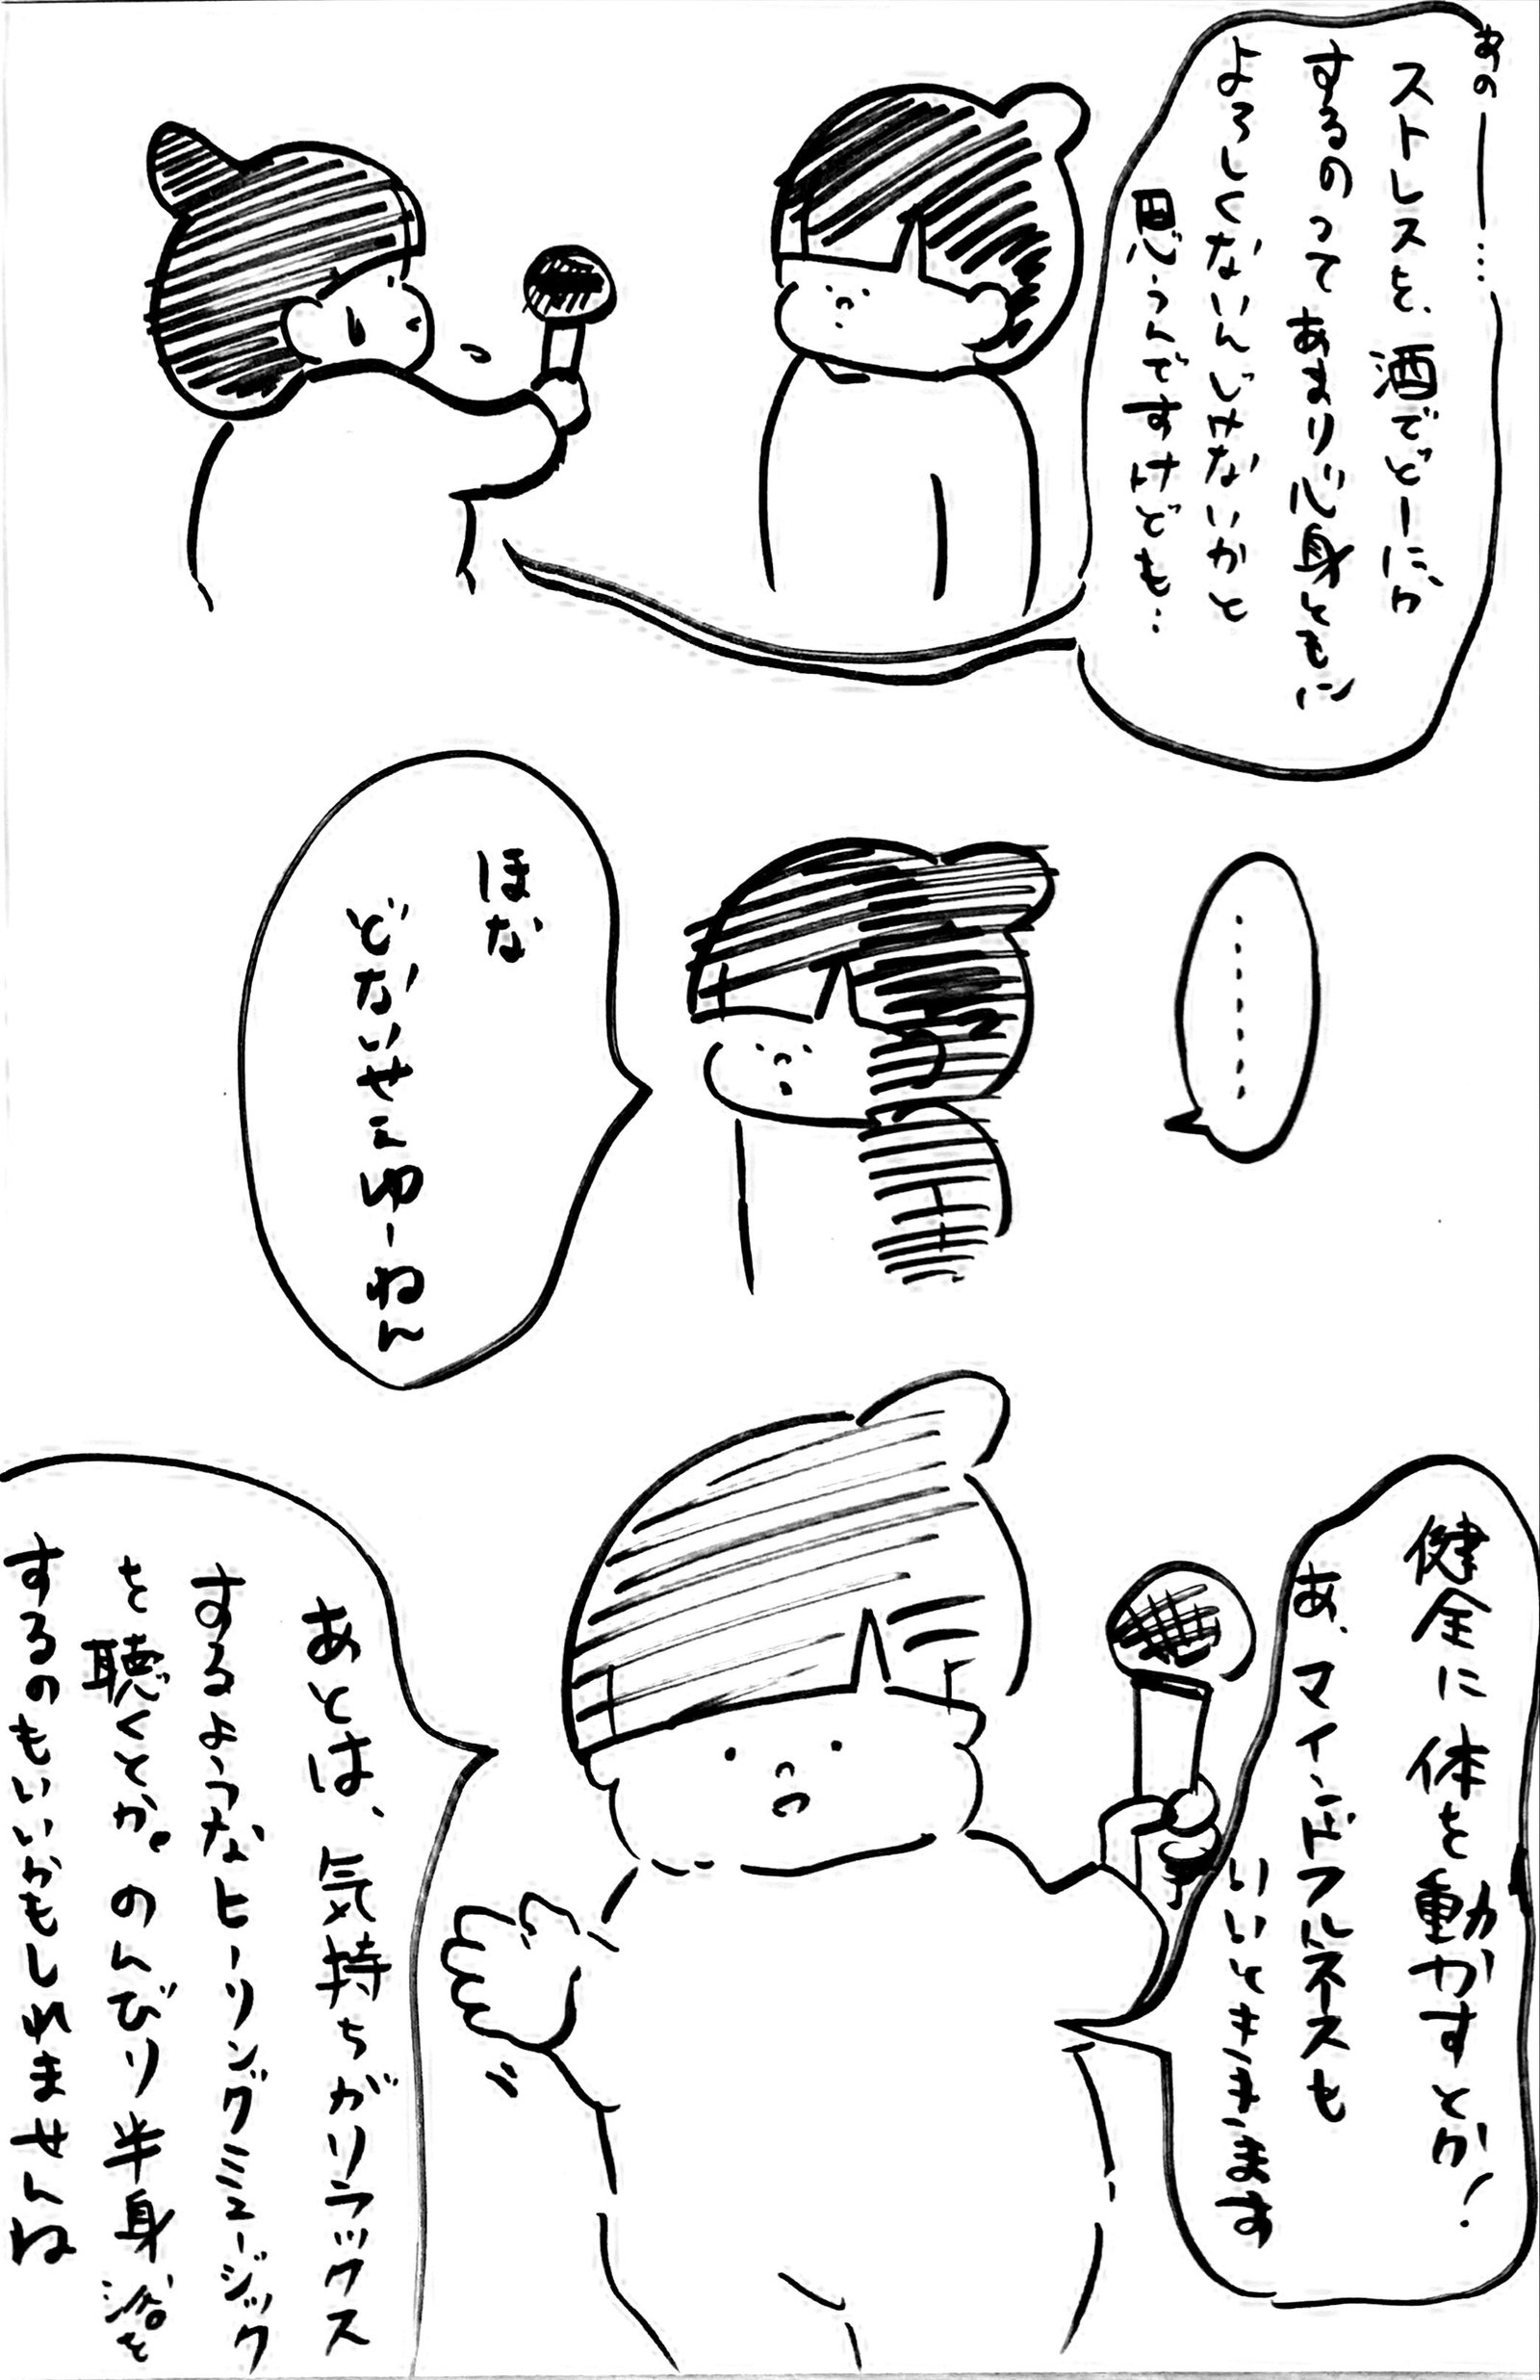 あのー…
ストレスを、酒でどーにか
するのってあまり心身ともに
よろしくないんじゃないかと
思うんですけども…
………
ほな
どないせぇゆーねん
健全に体を動かすとか!
あ、マインドフルネスも
いいとききます
あとは、気持ちがリラックス
するようなヒーリングミュージック
を聴くとか。のんびり半身浴を
するのもいいかもしれませんね